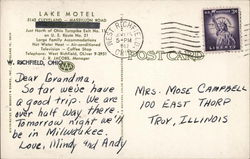 LAKE MOTEL
5145 CLEVELAND - MASSILLON ROAD
Just North of Ohio Turnpike Exit No. 11
on U. S. Route No. 21
Large Family Accommodations
Hot Water Heat - Air-conditioned
Television - Coffee Shop
Telephone: West Richfield, Oliver 9-2951
J. R. JACOBS, Manager
W. RICHFIELD, OHIO
POST CARD
WEST RICHFIELD
5 PM
OHIO
LIBERTY
3¢
Dear Grandma,
So far we've have
a good trip. We are
over half way there.
Tomorrow night we'll
be in Milwaukee.
Love, Mindy and Andy
MRS. MOSE CAMPBELL
100 EAST THORP
TROY, ILLINOIS